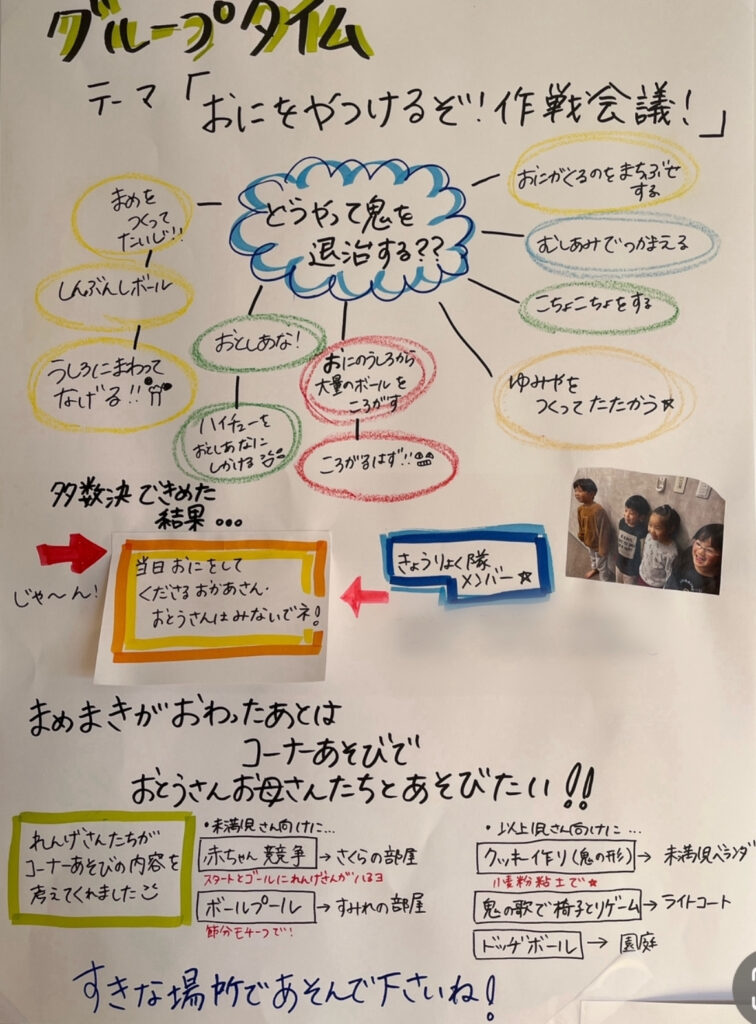 グループタイム
テーマ「おにをやつけるぞ!作戦会議!」
どうやって鬼を
退治する??
まめを
つくって
たいじ!!
しんぶんしボール
うしろにまわって
なげる!!
おとしあな!
ハイチューを
おとしあなに
しかける
おにのうしろから
大量のボールを
ころがす
ころがるはず!!
おにがくるのをまちぶせ
する
むしあみでつかまえる
こちょこちょをする
ゆみやを
つくってたたかう☆
多数決できめた
結果…
じゃ〜ん!
当日おにをして
くださるおかあさん・
おとうさんはみないでネ!
きょうりょく隊
メンバー☆
まめまきがおわったあとは
コーナーあそびで
おとうさんお母さんたちとあそびたい!!
れんげさんたちが
コーナーあそびの内容を
考えてくれました
・未満児さん向けに…
赤ちゃん競争→さくらの部屋
スタートとゴールにれんげさんがいるヨ
ボールプール→すみれの部屋
節分モチーフで!
・以上児さん向けに…
クッキー作り(鬼の形)→未満児ベランダ
小麦粉粘土で★
鬼の歌で椅子とりゲーム→ライトコート
ドッヂボール→園庭
すきな場所であそんで下さいね!